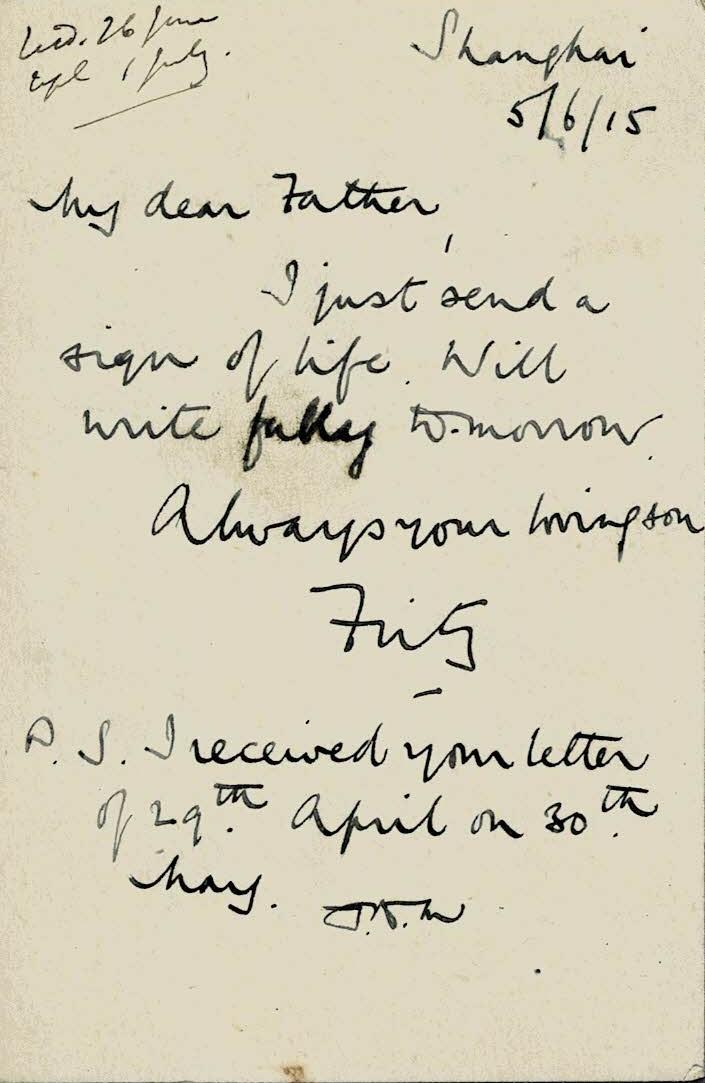 Recd. 26 June
Repl 1 July.
Shanghai
5/6/15
My dear Father,
I just send a
sign of life. Will
write fully to-morrow.
Always your loving son
Fritz
P.S. I received your letter
of 29th. April on 30th.
May.